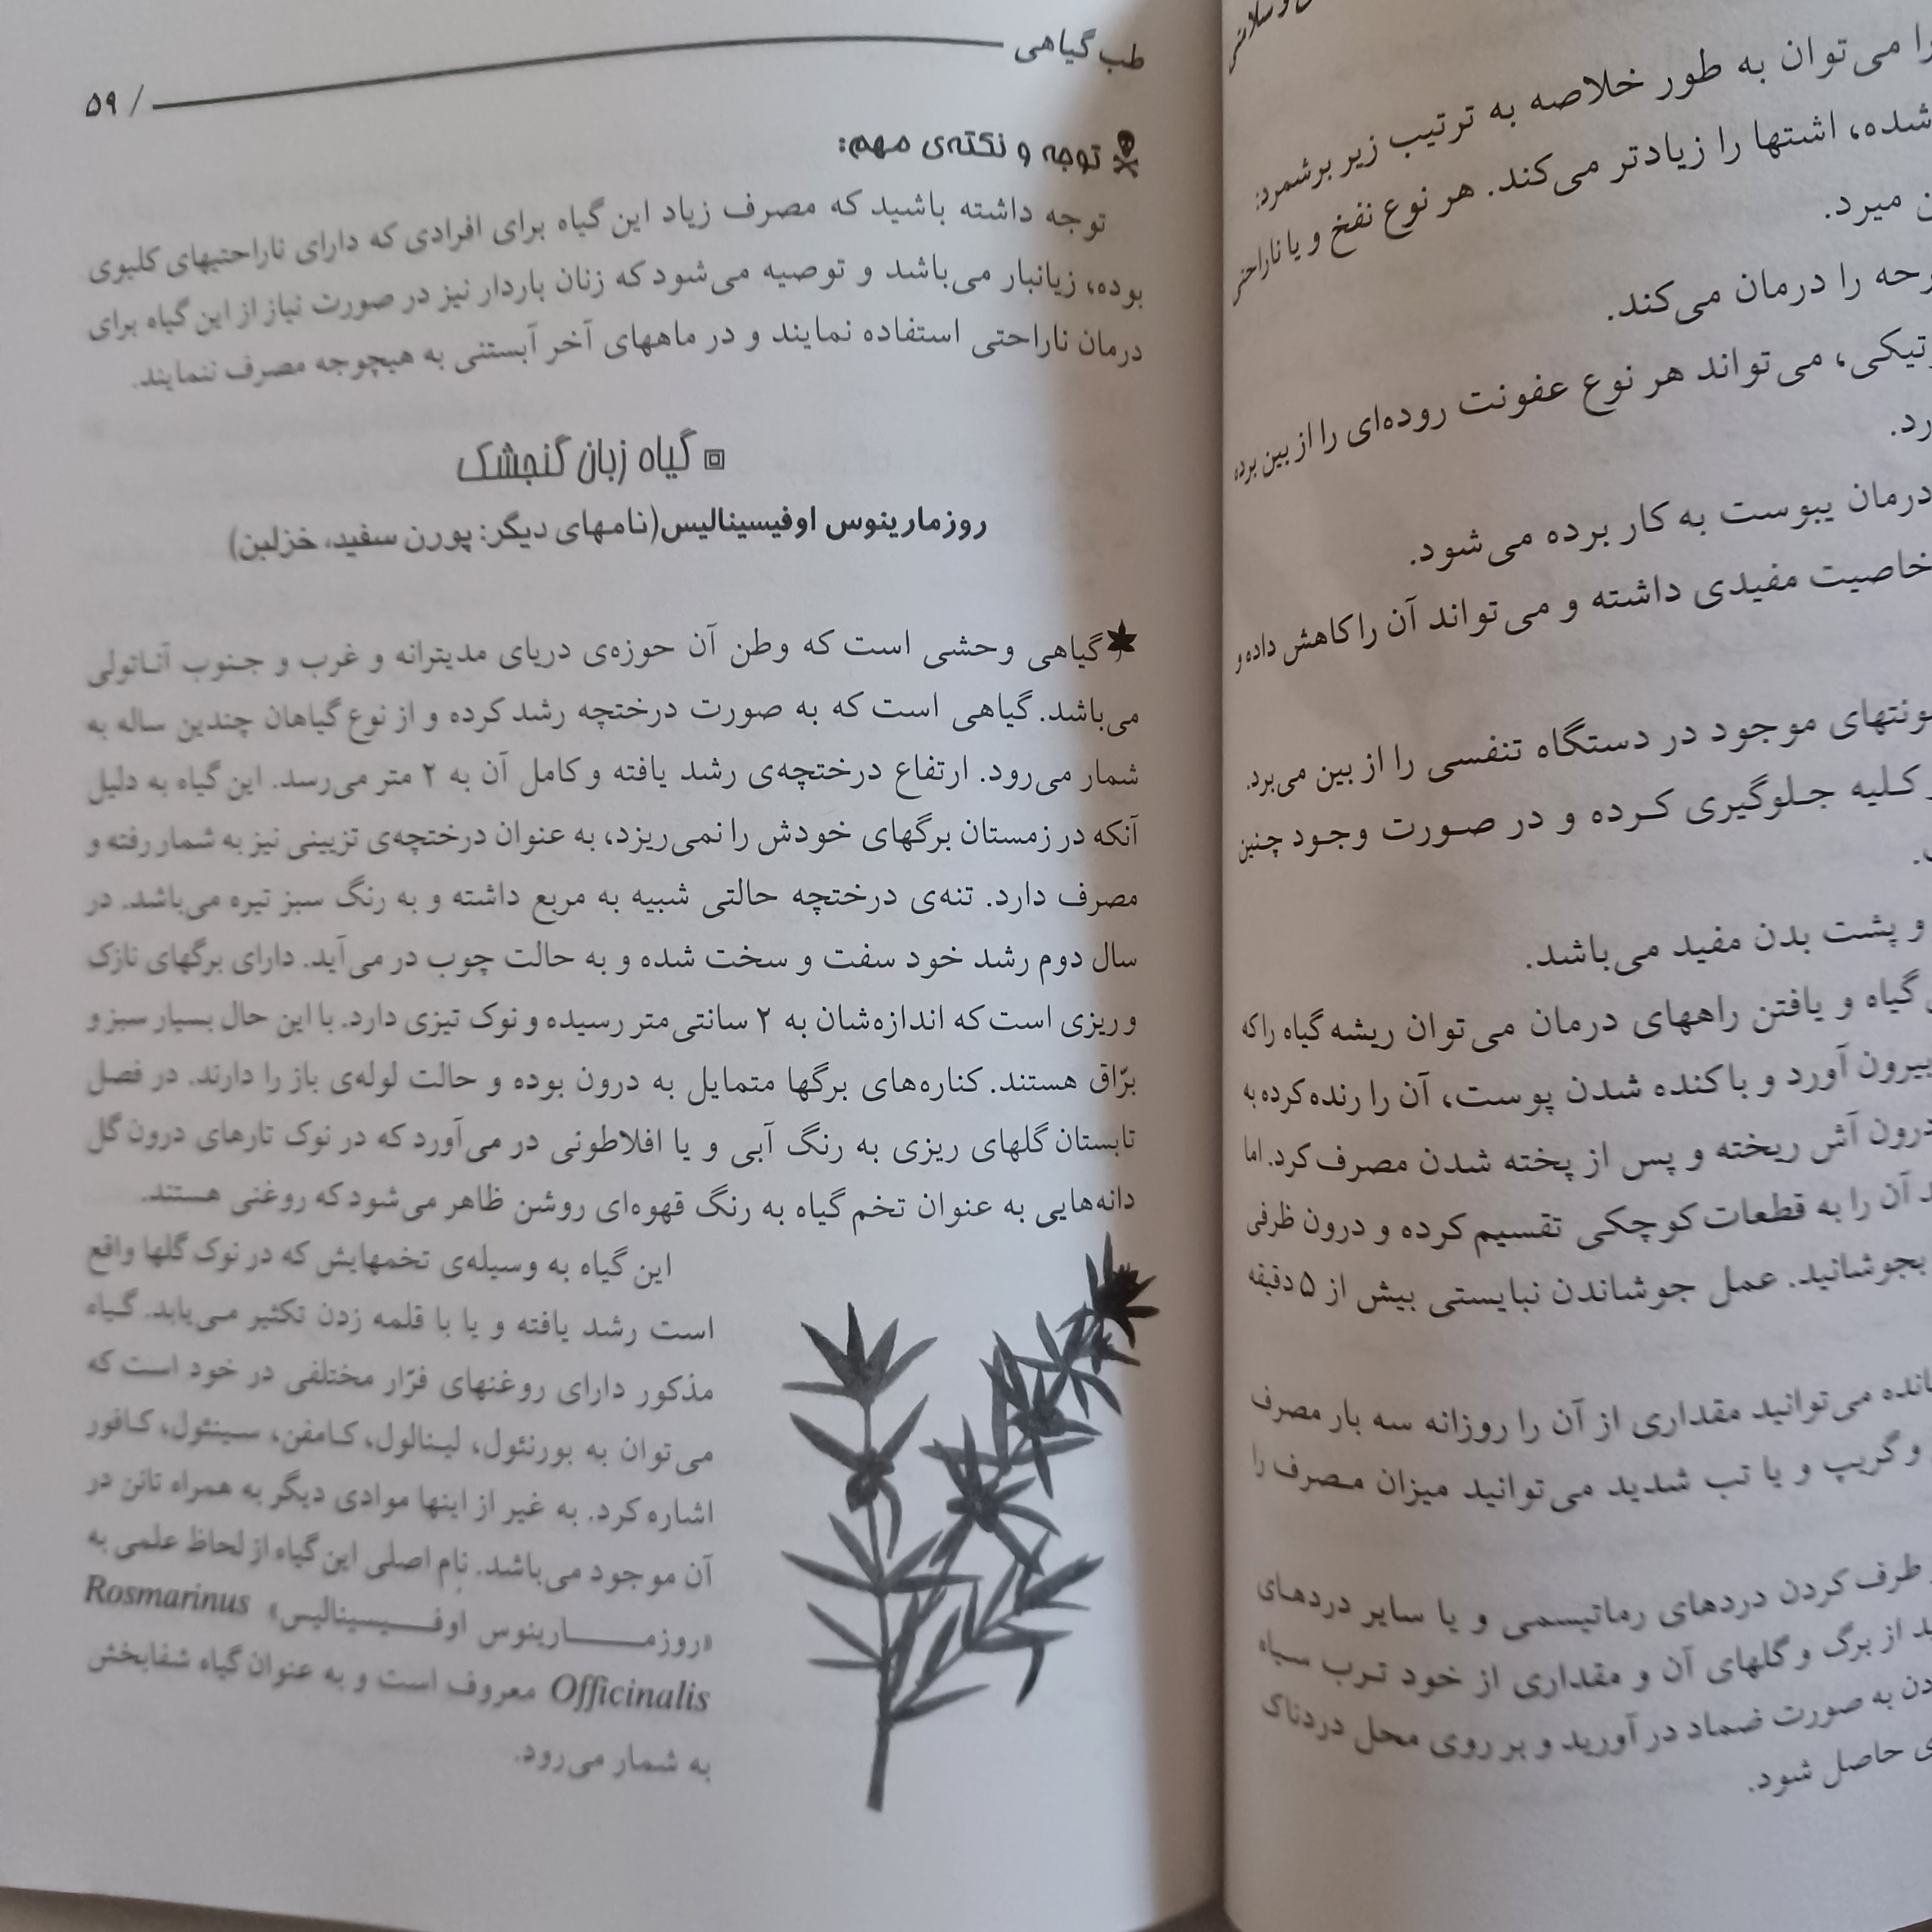 طب گیاهی
۵۹ /
توجه و نکته‌ی مهم:
توجه داشته باشید که مصرف زیاد این گیاه برای افرادی که دارای ناراحتیهای کلیوی
بوده، زیانبار می‌باشد و توصیه می‌شود که زنان باردار نیز در صورت نیاز از این گیاه برای
درمان ناراحتی استفاده نمایند و در ماههای آخر آبستنی به هیچوجه مصرف ننمایند.
گیاه زبان گنجشک
روزمارینوس اوفیسینالیس(نامهای دیگر: پورن سفید، خزلبن)
گیاهی وحشی است که وطن آن حوزه‌ی دریای مدیترانه و غرب و جنوب آناتولی
می‌باشد. گیاهی است که به صورت درختچه رشد کرده و از نوع گیاهان چندین ساله به
شمار می‌رود. ارتفاع درختچه‌ی رشد یافته و کامل آن به ۲ متر می‌رسد. این گیاه به دلیل
آنکه در زمستان برگهای خودش را نمی‌ریزد، به عنوان درختچه‌ی تزیینی نیز به شمار رفته و
مصرف دارد. تنه‌ی درختچه حالتی شبیه به مربع داشته و به رنگ سبز تیره می‌باشد. در
سال دوم رشد خود سفت و سخت شده و به حالت چوب در می‌آید. دارای برگهای نازک
و ریزی است که اندازه‌شان به ۲ سانتی‌متر رسیده و نوک تیزی دارد. با این حال بسیار سبز و
برّاق هستند. کناره‌های برگها متمایل به درون بوده و حالت لوله‌ی باز را دارند. در فصل
تابستان گلهای ریزی به رنگ آبی و یا افلاطونی در می‌آورد که در نوک تارهای درون گل
دانه‌هایی به عنوان تخم گیاه به رنگ قهوه‌ای روشن ظاهر می‌شود که روغنی هستند.
این گیاه به وسیله‌ی تخمهایش که در نوک گلها واقع
است رشد یافته و یا با قلمه زدن تکثیر می‌یابد. گیاه
مذکور دارای روغنهای فرّار مختلفی در خود است که
می‌توان به بورنئول، لینالول، کامفن، سینئول، کافور
اشاره کرد. به غیر از اینها موادی دیگر به همراه تانن در
آن موجود می‌باشد. نام اصلی این گیاه از لحاظ علمی به
«روزمارینوس اوفیسینالیس» Rosmarinus
Officinalis معروف است و به عنوان گیاه شفابخش
به شمار می‌رود.
را می‌توان به طور خلاصه به ترتیب زیر برشمرد:
شده، اشتها را زیادتر می‌کند. هر نوع نفخ و یا ناراحتی
میرد.
را درمان می‌کند.
می‌تواند هر نوع عفونت روده‌ای را از بین برده
درمان یبوست به کار برده می‌شود.
خاصیت مفیدی داشته و می‌تواند آن را کاهش داده و
موجود در دستگاه تنفسی را از بین می‌برد.
کلیه جلوگیری کرده و در صورت وجود چنین
و پشت بدن مفید می‌باشد.
گیاه و یافتن راههای درمان می‌توان ریشه گیاه را که
بیرون آورد و با کنده شدن پوست، آن را رنده کرده به
درون آش ریخته و پس از پخته شدن مصرف کرد. اما
آن را به قطعات کوچکی تقسیم کرده و درون ظرفی
بجوشانید. عمل جوشاندن نبایستی بیش از ۵ دقیقه
می‌توانید مقداری از آن را روزانه سه بار مصرف
و گریپ و یا تب شدید می‌توانید میزان مصرف را
طرف کردن دردهای رماتیسمی و یا سایر دردهای
از برگ و گلهای آن و مقداری از خود ترب سیاه
به صورت ضماد در آورید و بر روی محل دردناک
حاصل شود.